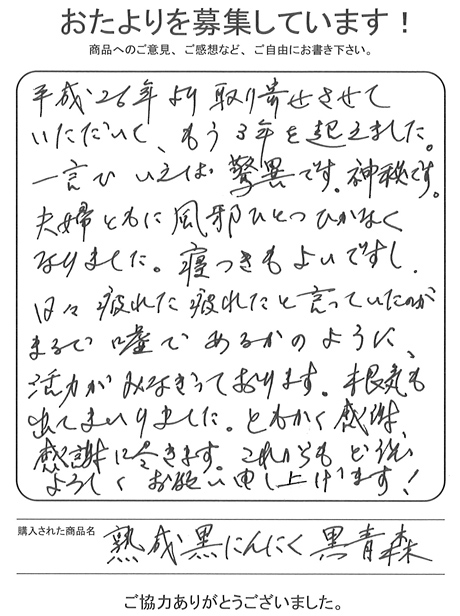 おたよりを募集しています！
商品へのご意見、ご感想など、ご自由にお書き下さい。
平成26年より取り寄せさせて
いただいて、もう3年を超えました。
一言でいえば驚異です。神秘です。
夫婦ともに風邪ひとつひかなく
なりました。寝つきもよいですし、
日々疲れた疲れたと言っていたのが
まるで嘘であるかのように、
活力がみなぎっております。根気も
出てまいりました。ともかく感謝、
感謝に尽きます。これからもど
よろしくお願い申し上げます！
購入された商品名
熟成黒にんにく黒青森
ご協力ありがとうございました。